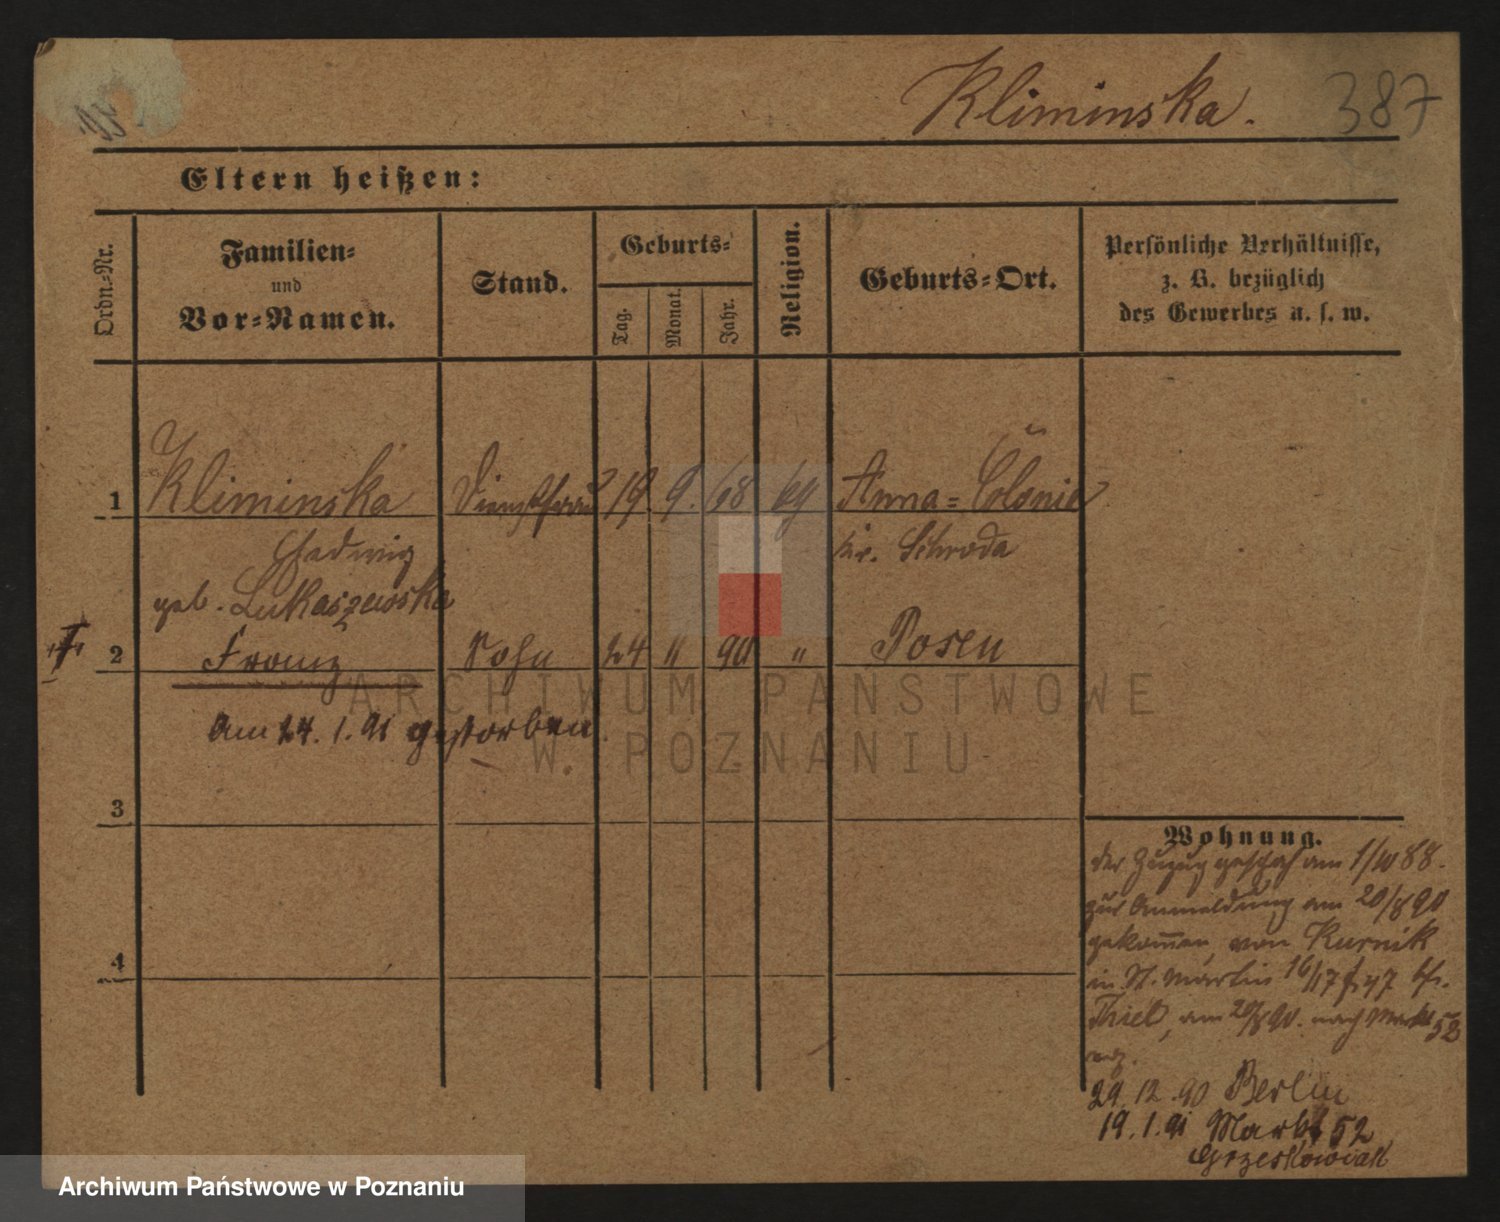 Kliminska.
387
Eltern heißen:
Ordn.-Nr.
Familien-
und
Vor-Namen.
Stand.
Geburts-
Tag.
Monat.
Jahr.
Religion.
Geburts-Ort.
Persönliche Verhältnisse,
z. B. bezüglich
des Gewerbes u. s. w.
1 Kliminska Dienstfrau 19. 9. 68 kg Anna-Colonie
Hedwig Kr. Schroda
geb. Lukaszewska
2 Franz Sohn 24 " 90 " Posen
Am 24. 1. 91 gestorben.
3
4
Wohnung.
der Zuzug geschah am 1/10 88.
zur Anmeldung am 20/8 90
gekom̅en, von Kurnik
in St. Martin 16/17 bei
Thiel, am 20/8 90. nach Markt 52
29. 12. 90 Berlin
19. 1. 91 Markt 52
Grzeskowiak
ARCHIWUM PAŃSTWOWE
W POZNANIU
Archiwum Państwowe w Poznaniu